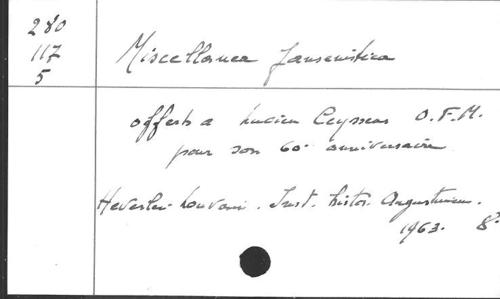 280
117
5
Miscellanea Jansenistica
offerts a Lucien Ceyssens O.F.M.
pour son 60e anniversaire
Heverlee-Louvain. Inst. histor. Augustinien.
1963. 8º